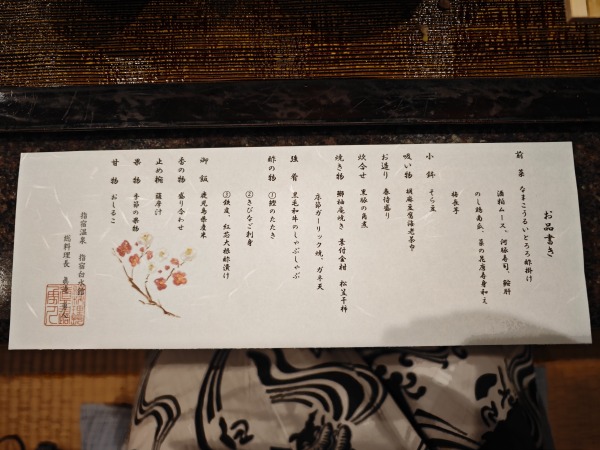 お品書き
前菜 なまこうるいとろろ酢掛け
酒粕ムース、河豚寿司、鮟肝
のし鶏南瓜、菜の花唐寿身和え
梅長芋
小鉢 そら豆
吸い物 胡麻豆腐海老茶巾
お造り 春侍盛り
炊合せ 黒豚の角煮
焼き物 鰤柚庵焼き 素付金柑 松笠干柿
原節ガーリック焼、ガネ天
強肴 黒毛和牛のしゃぶしゃぶ
酢の物 ①鰹のたたき
②きびなご刺身
③鉄皮、紅芯大根酢漬け
御飯 鹿児島県産米
香の物 盛り合わせ
止め椀 薩摩汁
果物 季節の果物
甘物 おしるこ
指宿温泉 指宿白水館
総料理長